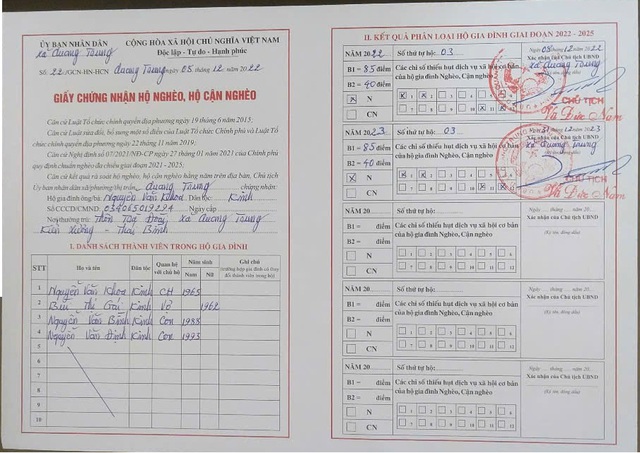 ỦY BAN NHÂN DÂN
xã Quang Trung
CỘNG HÒA XÃ HỘI CHỦ NGHĨA VIỆT NAM
Độc lập - Tự do - Hạnh phúc
Số: 22/GCN-HN-HCN
Quang Trung ngày 05 tháng 12 năm 2022
GIẤY CHỨNG NHẬN HỘ NGHÈO, HỘ CẬN NGHÈO
Căn cứ Luật Tổ chức chính quyền địa phương ngày 19 tháng 6 năm 2015;
Căn cứ Luật sửa đổi, bổ sung một số điều của Luật Tổ chức Chính phủ và Luật Tổ
chức chính quyền địa phương ngày 22 tháng 11 năm 2019;
Căn cứ Nghị định số 07/2021/NĐ-CP ngày 27 tháng 01 năm 2021 của Chính phủ
quy định chuẩn nghèo đa chiều giai đoạn 2021 - 2025;
Căn cứ kết quả rà soát hộ nghèo, hộ cận nghèo hằng năm trên địa bàn, Chủ tịch
Ủy ban nhân dân xã/phường/thị trấn Quang Trung chứng nhận:
Hộ gia đình ông/bà: Nguyễn Văn Khoa Dân tộc: Kinh
Số CCCD/CMND: Ngày cấp
Nơi thường trú: Thôn xã Quang Trung
Kiến Xương - Thái Bình
I. DANH SÁCH THÀNH VIÊN TRONG HỘ GIA ĐÌNH
STT Họ và tên Dân tộc Quan hệ với chủ hộ Năm sinh Nam Nữ Ghi chú
1 Nguyễn Văn Khoa Kinh CH 1965
2 Bùi Thị Gái Kinh Vợ 1962
3 Nguyễn Văn Bình Kinh Con 1988
4 Nguyễn Văn Đình Kinh Con 1993
5
6
7
8
9
10
II. KẾT QUẢ PHÂN LOẠI HỘ GIA ĐÌNH GIAI ĐOẠN 2022 - 2025
NĂM 2022 Số thứ tự hộ: 03
B1 = 85 điểm Các chỉ số thiếu hụt dịch vụ xã hội cơ bản
B2 = 40 điểm của hộ gia đình Nghèo, Cận nghèo
N
CN
Xác nhận của Chủ tịch UBND
xã Quang Trung
CHỦ TỊCH
Hà Đức Năm
NĂM 2023 Số thứ tự hộ: 03
B1 = 85 điểm Các chỉ số thiếu hụt dịch vụ xã hội cơ bản
B2 = 40 điểm của hộ gia đình Nghèo, Cận nghèo
N
CN
xã Quang Trung
CHỦ TỊCH
Hà Đức Năm
NĂM 20 Số thứ tự hộ:
B1 = điểm Các chỉ số thiếu hụt dịch vụ xã hội cơ bản
B2 = điểm của hộ gia đình Nghèo, Cận nghèo
N
CN
Ngày ... tháng ... năm 20...
Xác nhận của Chủ tịch UBND
(Ký tên, đóng dấu)
NĂM 20 Số thứ tự hộ:
B1 = điểm Các chỉ số thiếu hụt dịch vụ xã hội cơ bản
B2 = điểm của hộ gia đình Nghèo, Cận nghèo
N
CN
Ngày ... tháng ... năm 20...
Xác nhận của Chủ tịch UBND
(Ký tên, đóng dấu)
NĂM 20 Số thứ tự hộ:
B1 = điểm Các chỉ số thiếu hụt dịch vụ xã hội cơ bản
B2 = điểm của hộ gia đình Nghèo, Cận nghèo
N
CN
Ngày ... tháng ... năm 20...
Xác nhận của Chủ tịch UBND
(Ký tên, đóng dấu)